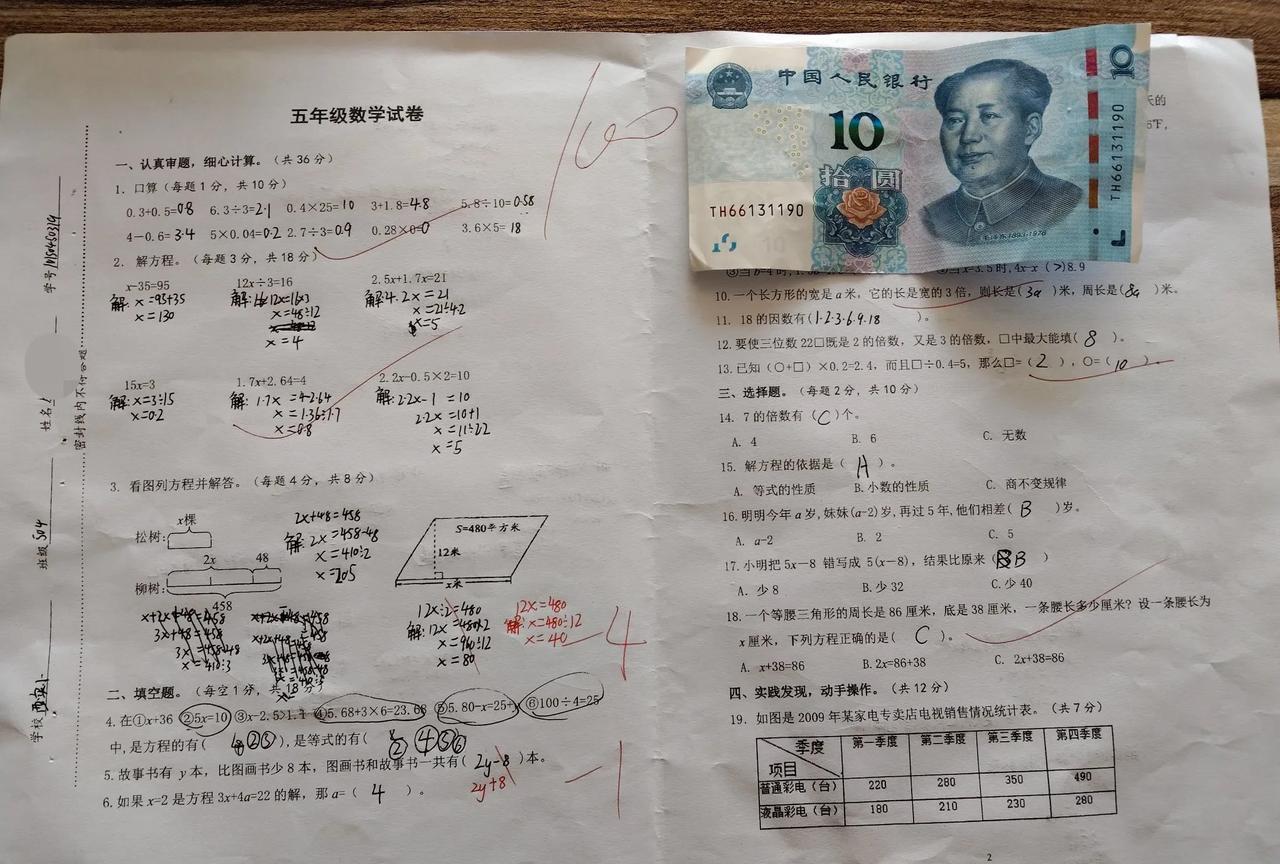 五年级数学试卷
100
一、认真审题，细心计算。（共36分）
1. 口算（每题1分，共10分）
0.3+0.5=0.8 6.3÷3=2.1 0.4×25=10 3+1.8=4.8 5.8÷10=0.58
4－0.6=3.4 5×0.04=0.2 2.7÷3=0.9 0.28×0=0 3.6×5=18
2. 解方程。（每题3分，共18分）
x-35=95 12x÷3=16 2.5x+1.7x=21
解: x=95+35 解: 12x=16×3 解: 4.2x=21
x=130 x=48÷12 x=21÷4.2
x=4 x=5
15x=3 1.7x+2.64=4 2.2x-0.5×2=10
解: x=3÷15 解: 1.7x=4-2.64 解: 2.2x-1=10
x=0.2 x=1.36÷1.7 2.2x=10+1
x=0.8 x=11÷2.2
x=5
3. 看图列方程并解答。（每题4分，共8分）
x棵
松树:
2x 48
柳树:
458
2x+48=458
解: 2x=458-48
x=410÷2
x=205
x+2x+48=458
3x+48=458
3x=458-48
x=410÷3
S=480平方米
12米
x米
12x÷2=480
解: 12x=480×2
x=960÷12
x=80
12x=480
解: x=480÷12
x=40
-4
二、填空题。（每空1分，共18分）
4. 在①x+36 ②5x=10 ③x-2.5>1.1 ④5.68+3×6=23.68 ⑤5.80-x=25+y ⑥100÷4=25
中,是方程的有（ ②⑤ ）,是等式的有（ ② ④⑤⑥
5. 故事书有 y 本，比图画书少8本，图画书和故事书一共有（ 2y-8 ）本。
2y+8
-1
6. 如果 x=2 是方程 3x+4a=22 的解，那 a=（ 4 ）。
学校
班级 504
姓名
学号
密封线内不得答题
中国人民银行
10
拾圆
TH66131190
TH66131190
10
毛泽东 1893-1976
天的
③当b=4时,1. ④当x=3.5时,4x-x (>)8.9
10. 一个长方形的宽是 a 米，它的长是宽的3倍，则长是（3a）米，周长是（8a）米。
11. 18的因数有(1·2·3·6·9·18 )。
12. 要使三位数22□既是2的倍数，又是3的倍数，□中最大能填( 8 )。
13. 已知（○+□）×0.2=2.4，而且□÷0.4=5，那么□=（ 2 ），○=（ 10 ）。
三、选择题。（每题2分，共10分）
14. 7的倍数有（C）个。
A. 4 B. 6 C. 无数
15. 解方程的依据是（ A ）。
A. 等式的性质 B.小数的性质 C. 商不变规律
16. 明明今年 a 岁,妹妹(a-2)岁,再过5年,他们相差( B )岁。
A. a-2 B. 2 C. 5
17. 小明把 5x－8 错写成 5(x－8)，结果比原来（ B ）
A. 少8 B.少32 C.少40
18. 一个等腰三角形的周长是86厘米，底是38厘米，一条腰长多少厘米？设一条腰长为
x厘米，下列方程正确的是（ C ）。
A. x+38=86 B.2x=86+38 C. 2x+38=86
四、实践发现，动手操作。（共12分）
19. 如图是2009年某家电专卖店电视销售情况统计表。（共7分）
季度 第一季度 第二季度 第三季度 第四季度
项目
普通彩电（台） 220 280 350 490
液晶彩电（台） 180 210 230 280
2